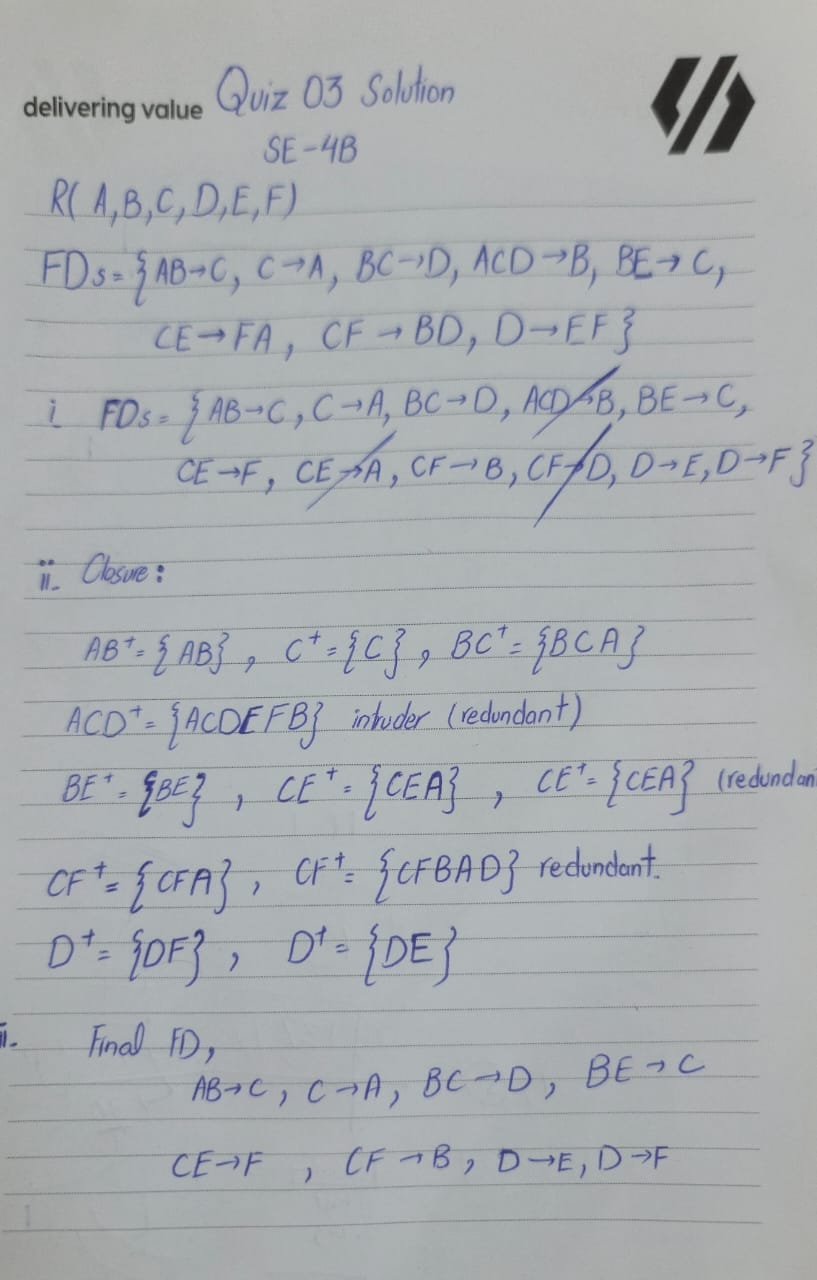 delivering value Quiz 03 Solution
SE-4B
R( A,B,C,D,E,F)
FDs = { AB→C, C→A, BC→D, ACD→B, BE→C,
CE→FA, CF→BD, D→EF }
i FDs = { AB→C, C→A, BC→D, ACD→B, BE→C,
CE→F, CE→A, CF→B, CF→D, D→E, D→F }
ii. Closure :
AB⁺= {AB} , C⁺= {C} , BC⁺= {BCA}
ACD⁺= {ACDEFB} intruder (redundant)
BE⁺= {BE} , CE⁺= {CEA} , CE⁺= {CEA} (redundan
CF⁺= {CFA} , CF⁺= {CFBAD} redundant.
D⁺= {DF} , D⁺= {DE}
ii. Final FD,
AB→C, C→A, BC→D, BE→C
CE→F , CF→B, D→E, D→F